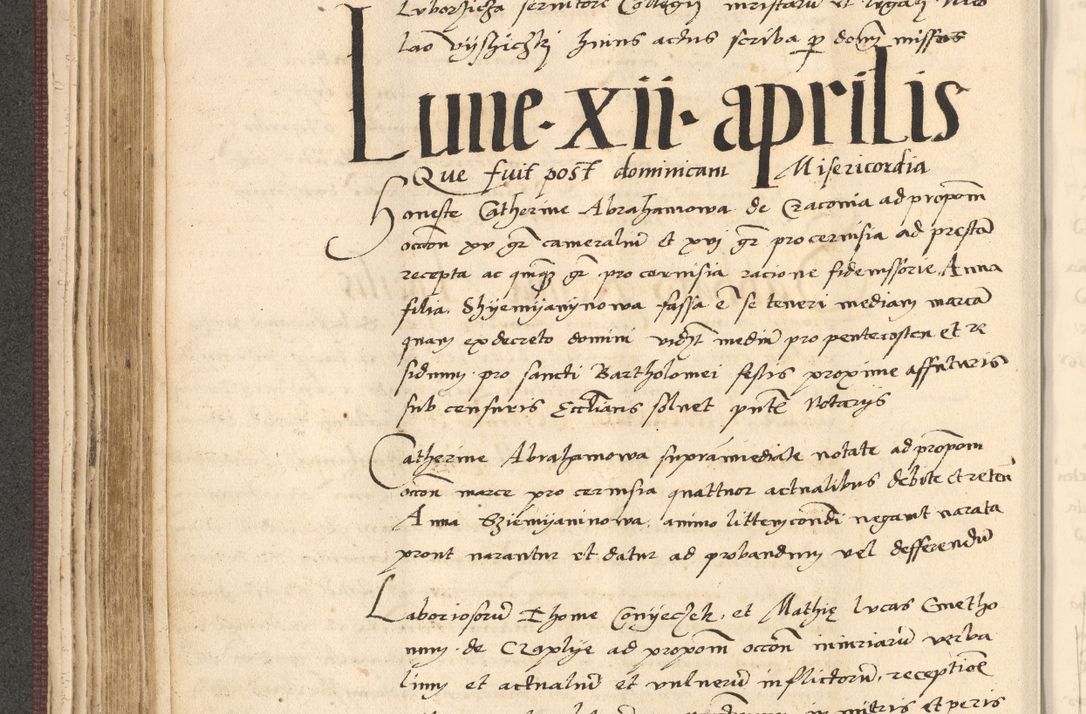 lao vyshiczkj huius actus scriba p dom missus
Lune · xii · aprilis
Que fuit post dominicam Misericordia
Honeste Catherine Abrahamowa de Cracouia ad propom
occon xv gr cameraliu et xvj gr pro ceruisia ad presta
recepta ac quinq gr pro ceruisia racione fideiussorie, Anna
filia. Shyemyanynowa fassa e se teneri mediam marca
quam ex decreto domini vidzt mediu pro pentecosten et re
siduum pro sancti Bartholomei festis proxime affuturis
sub censuris Ecclians soluet pnte Notarijs
Catherine Abrahamowa supraimediate notate ad propom
occon marce pro ceruisia quattuor actualibus debite et reten
Anna Sziemyaninowa. animo littemcondi negaut narata
prout narantur et datur ad probandum vel defferendu
Laboriosoru Thome Conyeczek, et Mathie lucas Cmetho
num de Czaplye ad propom occon iniuriaru verba
lium et actualiu et vulneru inflictoru, receptioe